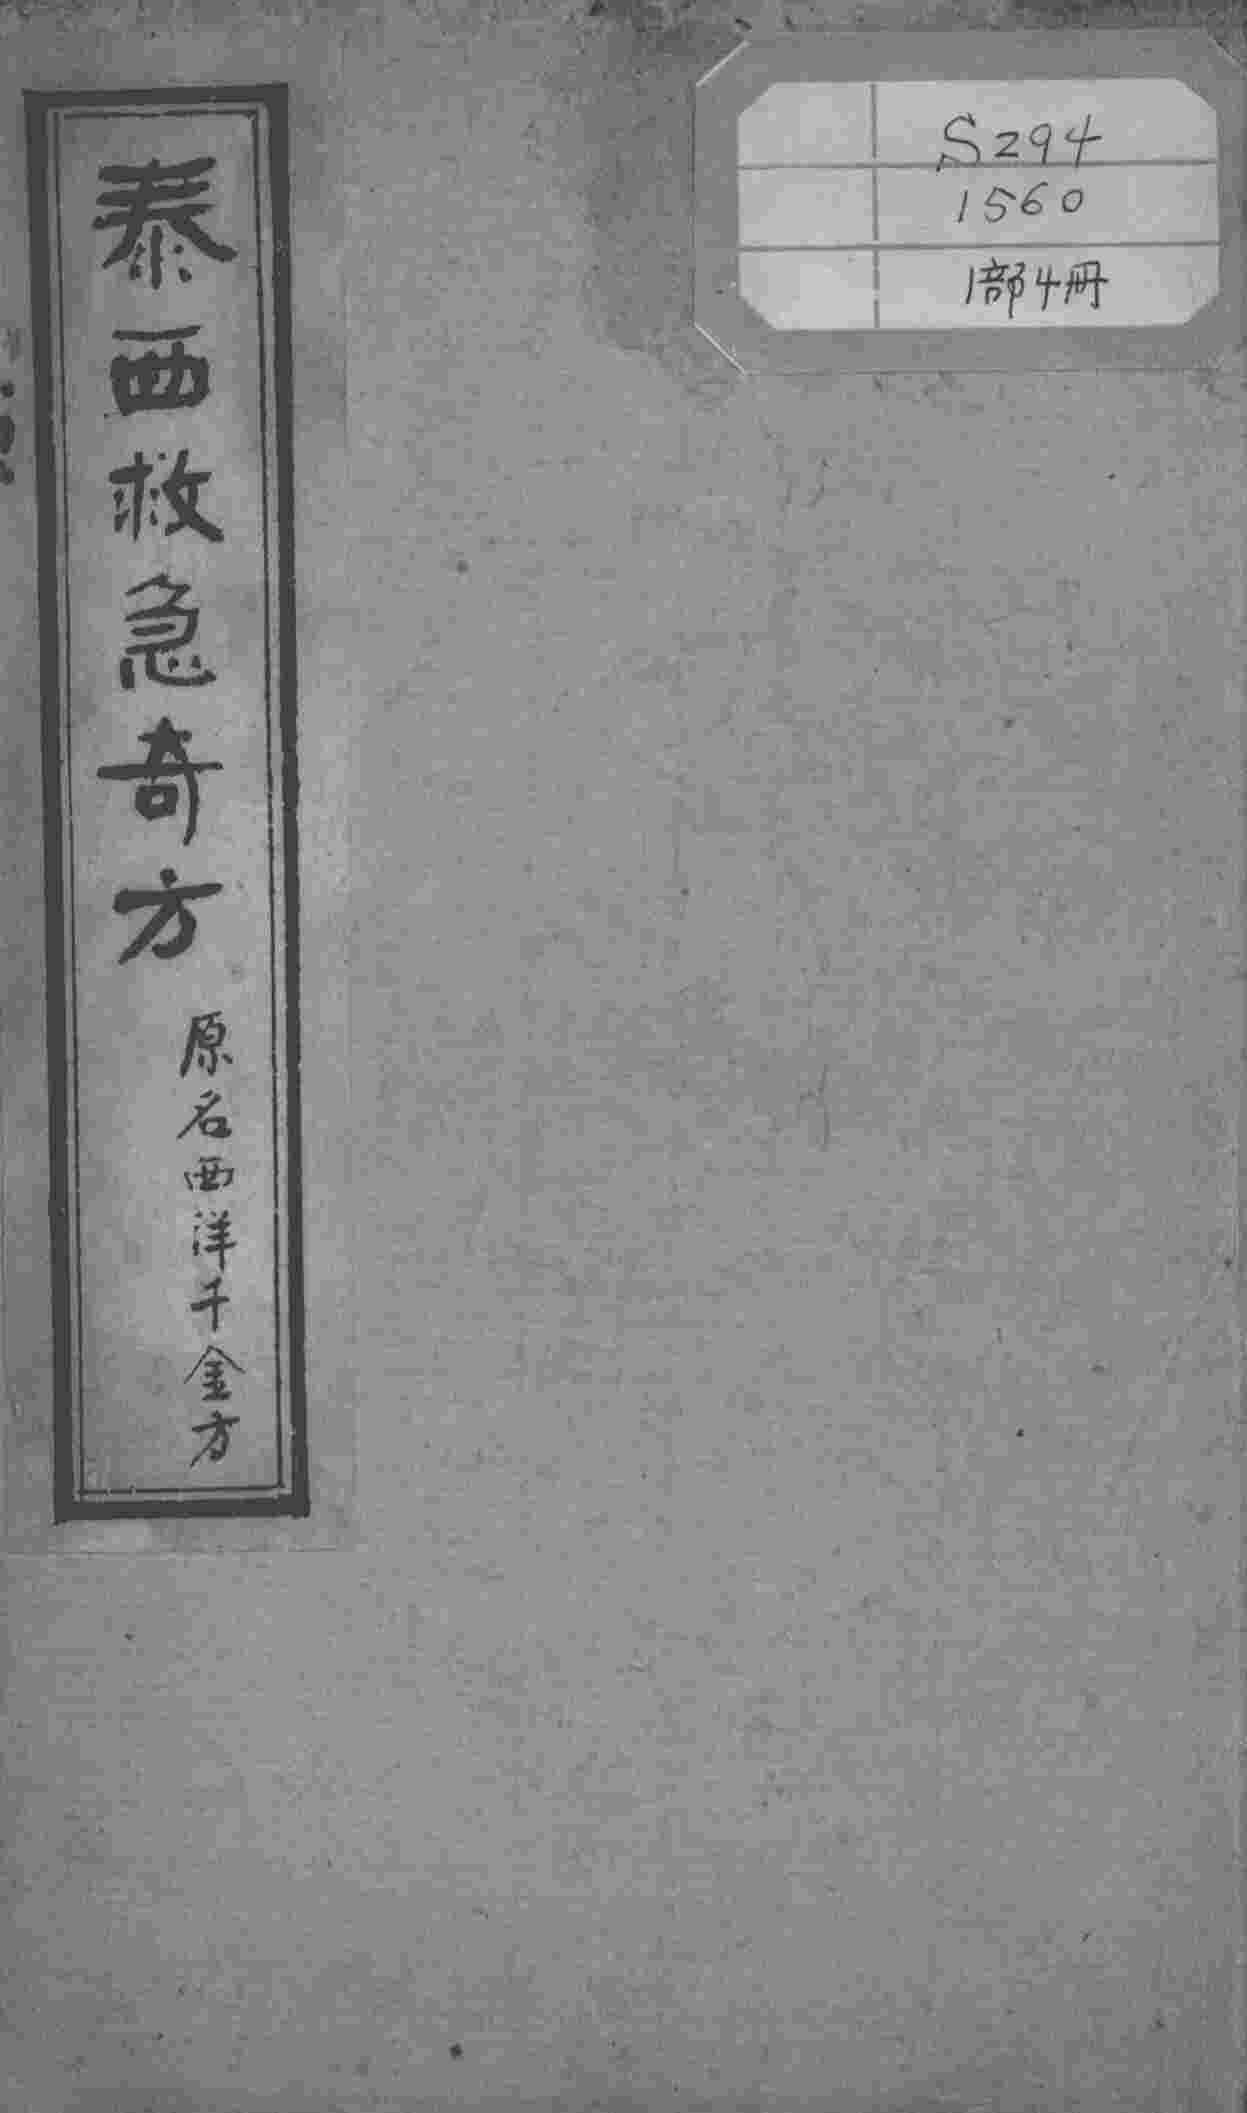 S294
1560
1部4冊
泰西救急奇方
原名西洋千金方